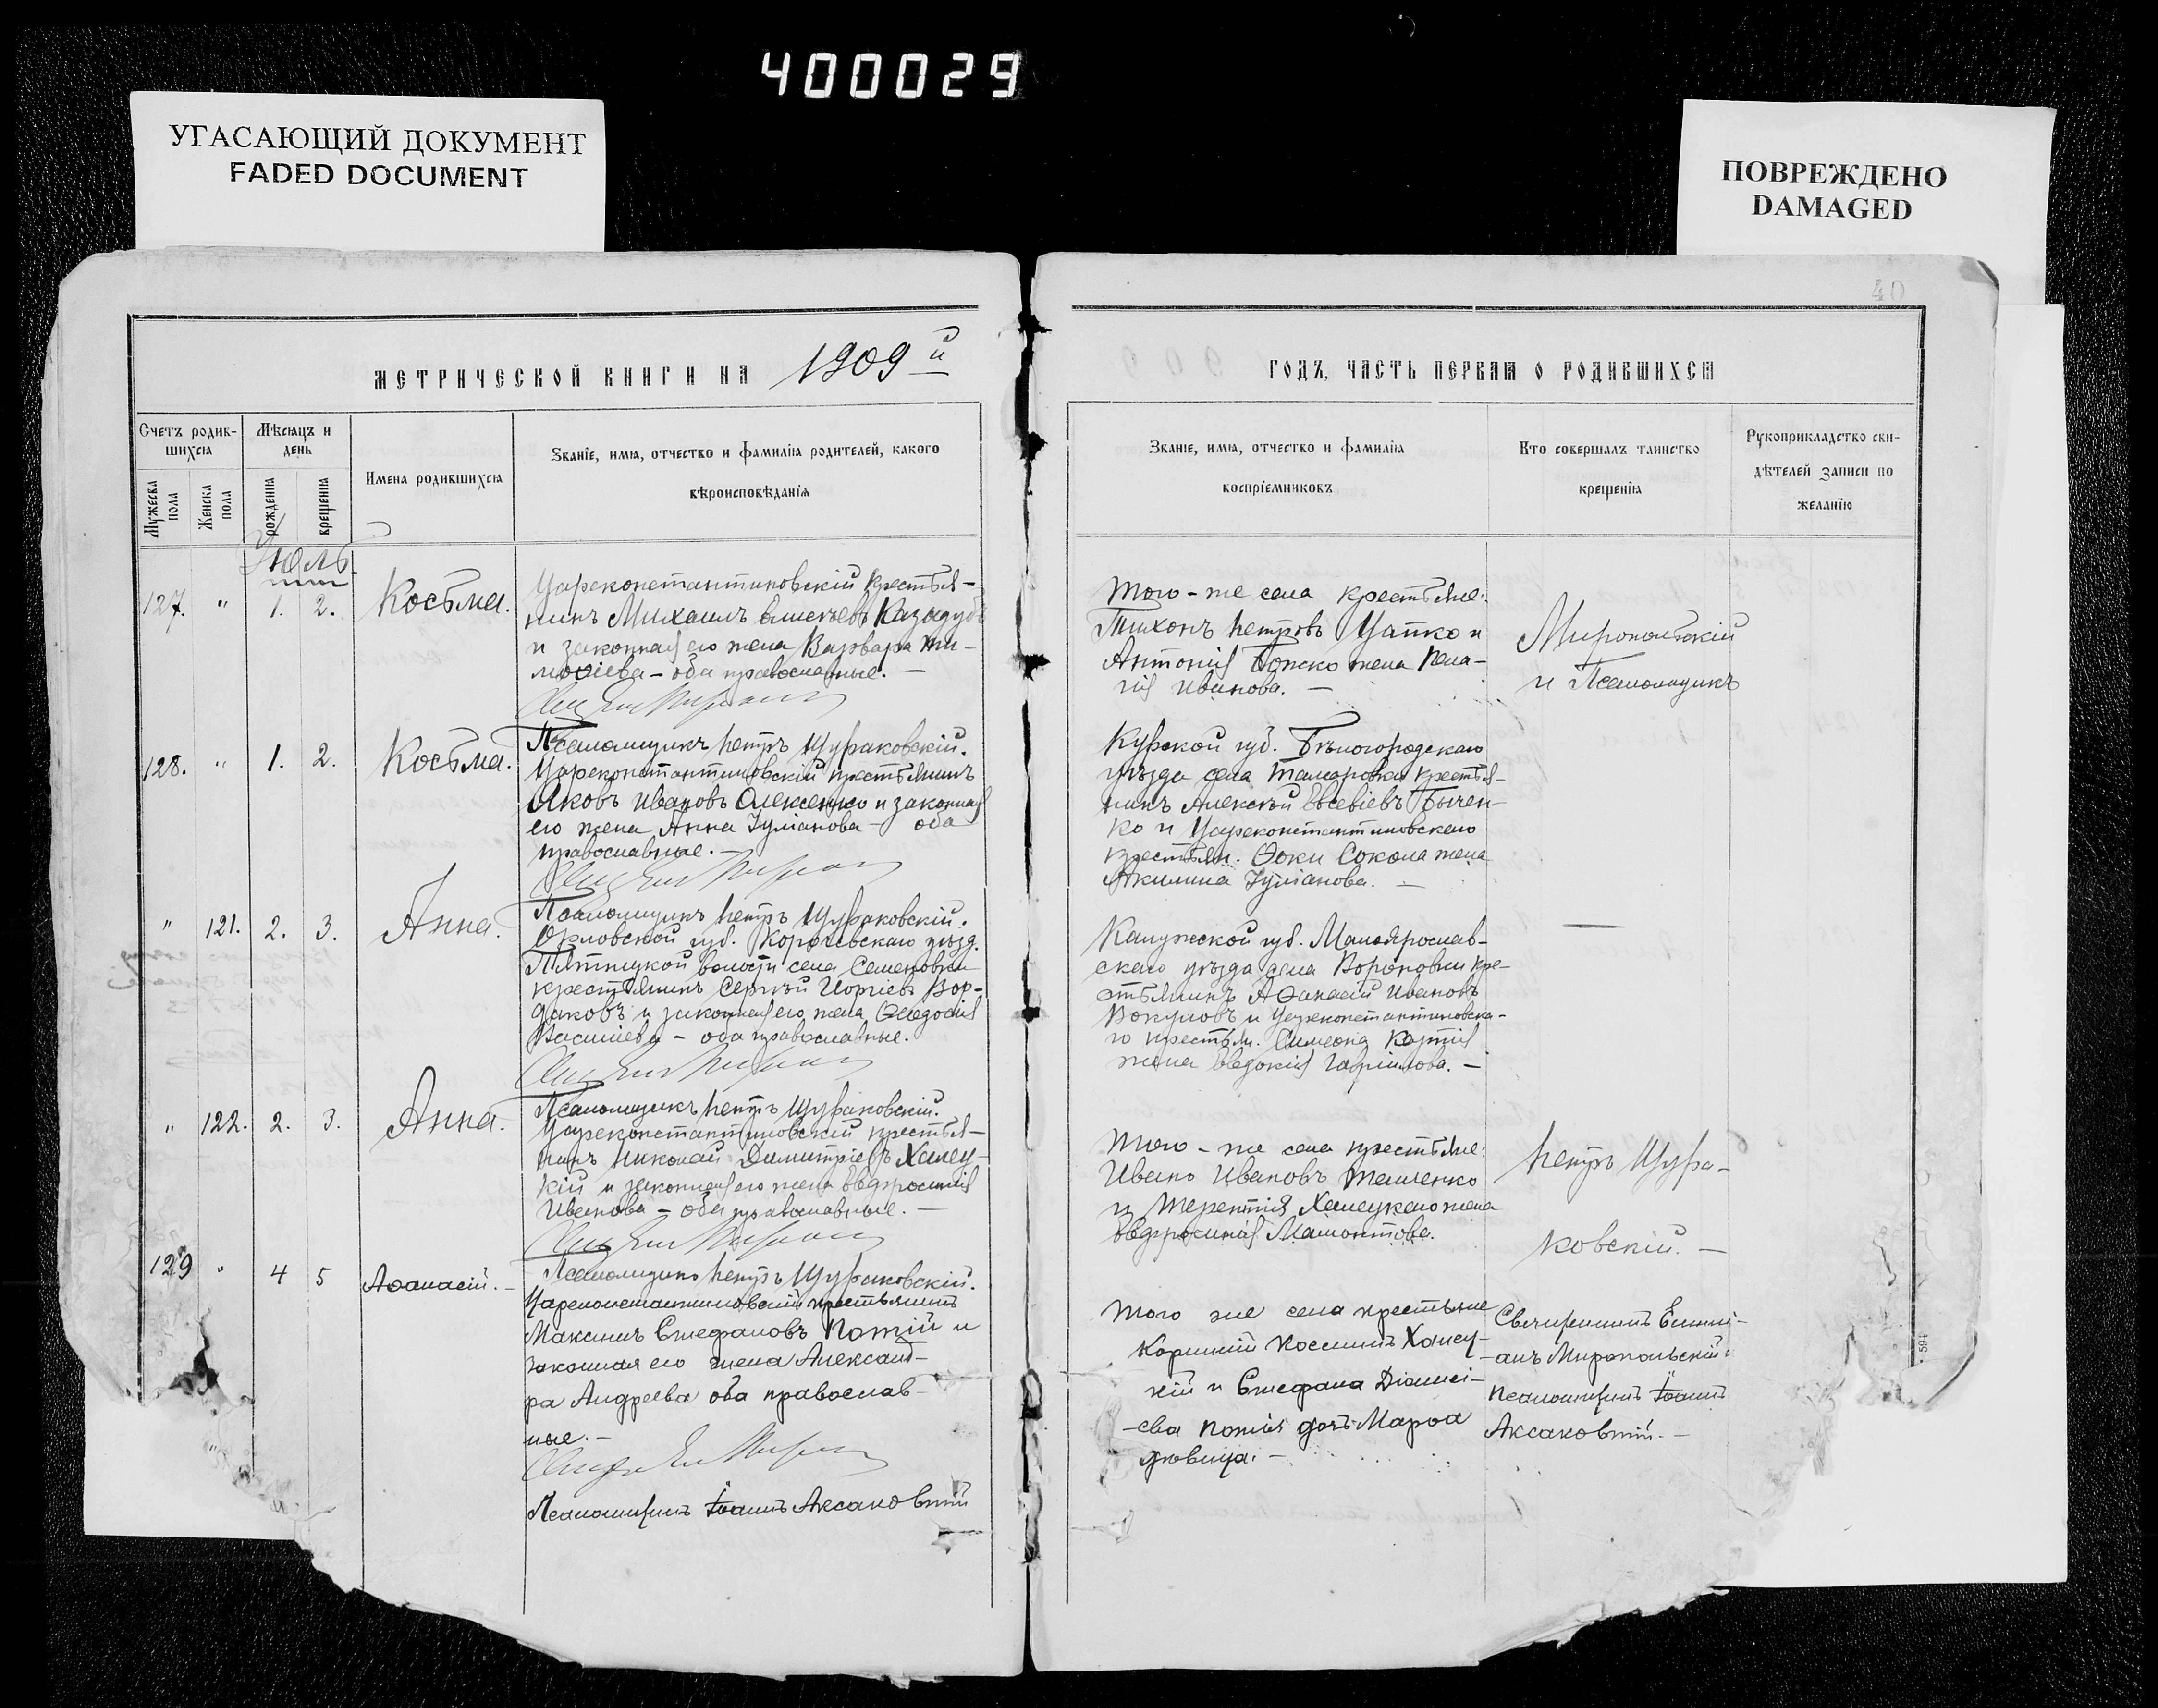 400029
УГАСАЮЩИЙ ДОКУМЕНТ
FADED DOCUMENT
ПОВРЕЖДЕНО
DAMAGED
40
МЕТРИЧЕСКОЙ КНИГИ НА 1909й
ГОДЪ, ЧАСТЬ ПЕРВАЯ О РОДИВШИХСЯ
Счетъ родив-
шихся
Мужеска пола
Женска пола
Мѣсяцъ и
день
рожденія
крещенія
Имена родившихся
Званіе, имя, отчество и фамилія родителей, какого
вѣроисповѣданія
Званіе, имя, отчество и фамилія
воспріемниковъ
Кто совершалъ таинство
крещенія
Рукоприкладство сви-
дѣтелей записи по
желанію
Июль
127. " 1. 2. Косьма.
Цареконстантиновскій крестья-
нинъ Михаилъ
и законная его жена Варвара Ти-
моѳіева – оба православные. –
Псаломщикъ Петръ Щураковскій.
Того-же села крестьяне:
Тихонъ Петровъ Цапко и
Антонія жена Пела-
гія Иванова. –
Миропольскій
и Псаломщикъ
128. " 1. 2. Косьма.
Цареконстантиновскій крестьянинъ
Яковъ Ивановъ Олексенко и законная
его жена Анна Іуліанова – оба
православные. –
Псаломщикъ Петръ Щураковскій.
Курской губ. Бѣлогородскаго
уѣзда села Тамаровки крестья-
нинъ Алексѣй Евсевіевъ Бычен-
ко и Цареконстантиновскаго
крестьян. Ѳоки Сокола жена
Акилина Іуліанова. –
" 121. 2. 3. Анна.
Орловской губ. Карачевскаго уѣзд.
Пятницкой волости села Семеновки
крестьянинъ Сергѣй
и законная его жена Ѳеодосія
Васильева – оба православные.
Псаломщикъ Петръ Щураковскій.
Калужской губ. Малоярослав-
скаго уѣзда села Вороновки кре-
стьянинъ Аѳанасій Ивановъ
Вокуловъ и Цареконстантиновска-
го крестьян. Симеона
жена Евдокія Гавріилова. –
" 122. 2. 3. Анна.
Цареконстантиновскій крестья-
нинъ Николай Димитріевъ Ханец-
кій и законная его жена Евфросинія
Иванова – оба православные. –
Псаломщикъ Петръ Щураковскій.
Того-же села крестьяне:
Иванъ Ивановъ
и Терентія Ханецкаго жена
Евфросинія Мамонтова.
Петръ Щура-
ковскій. –
129 " 4 5 Аѳанасій. –
Цареконстантиновскій крестьянинъ
Максимъ Стефановъ Потій и
законная его жена Александ-
ра Андреева оба православ-
ные. –
Псаломщикъ Іоаннъ Аксаковскій
Того же села крестьяне
Корнилій Космичъ Ханец-
кій и Стефана Діонисі-
ева Потія дочь Марѳа
дѣвица. –
Священникъ Емилі-
анъ Миропольскій и
Псаломщикъ Іоаннъ
Аксаковскій. –